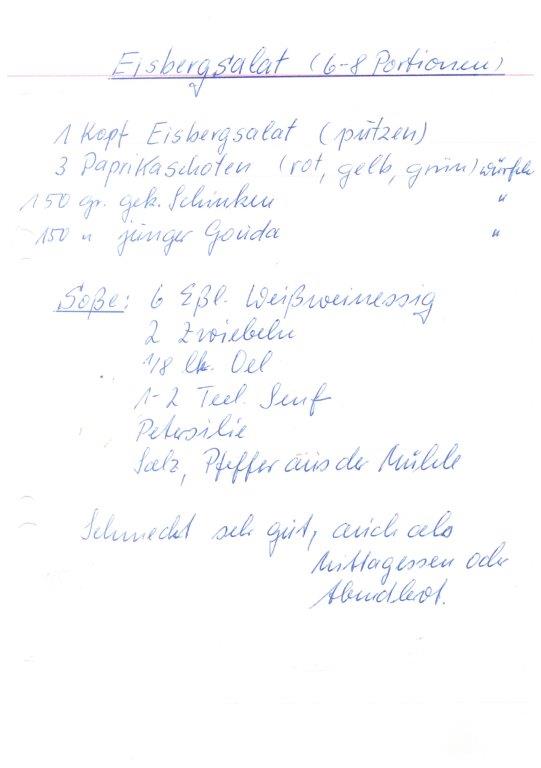 Eisbergsalat (6-8 Portionen)
1 Kopf Eisbergsalat (putzen)
3 Paprikaschoten (rot, gelb, grün) würfeln
150 gr. gek. Schinken "
150 " junger Gouda "
Soße: 6 Eßl. Weißweinessig
2 Zwiebeln
1/8 ltr. Oel
1-2 Teel. Senf
Petersilie
Salz, Pfeffer aus der Mühle
Schmeckt sehr gut, auch als
Mittagessen oder
Abendbrot.